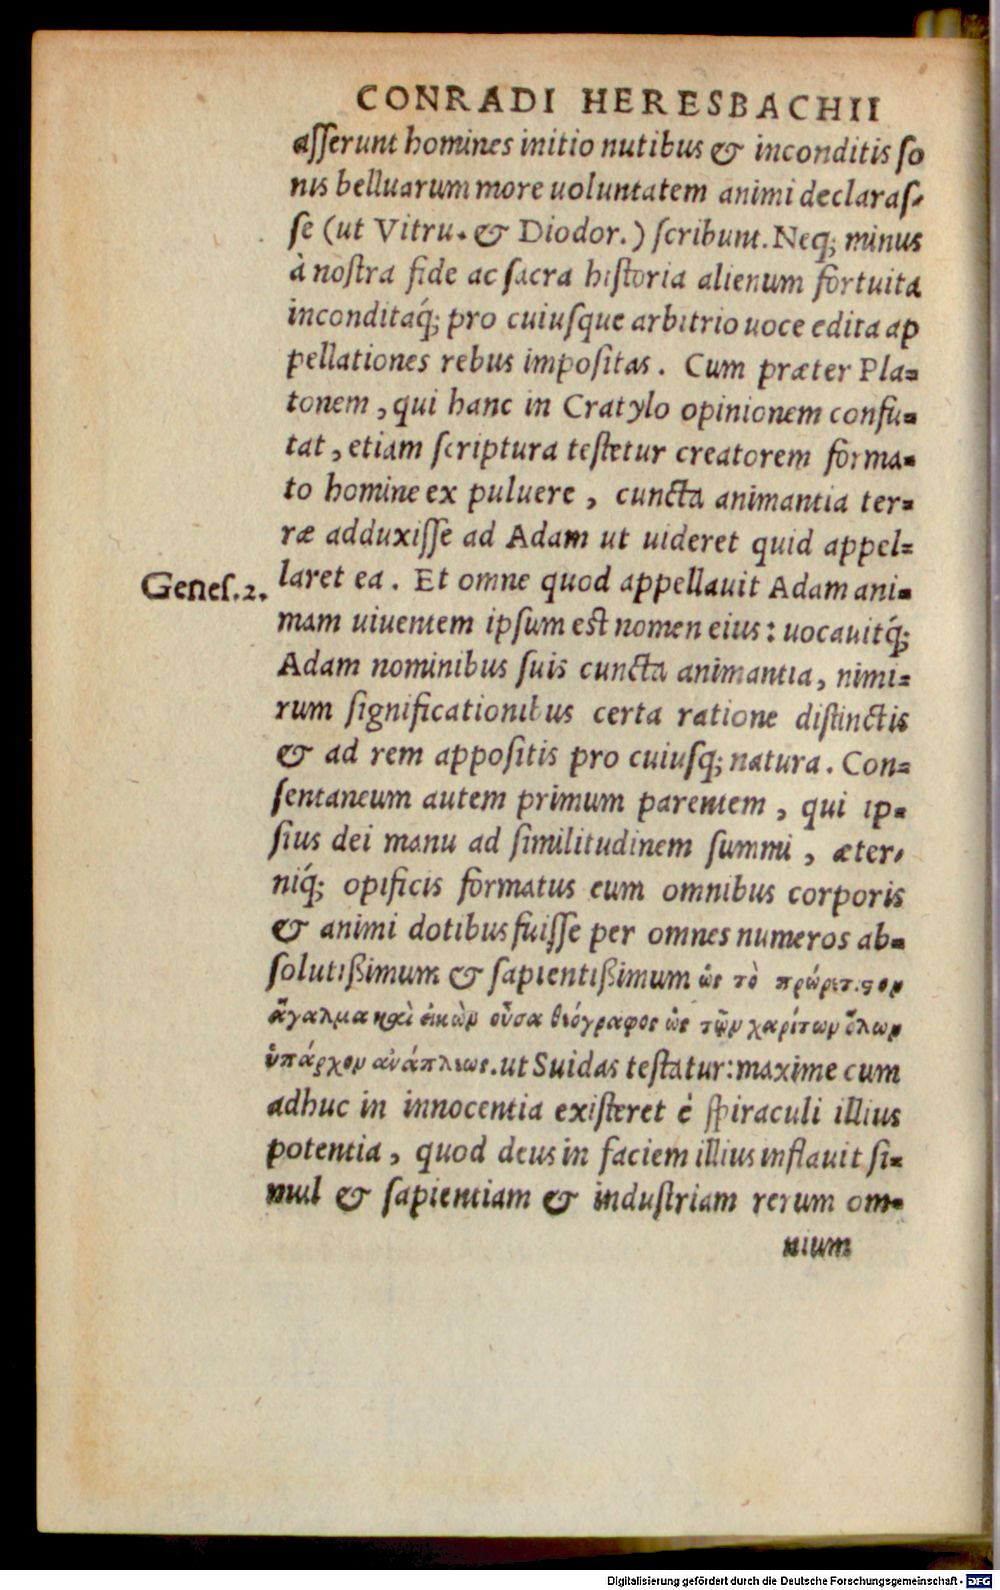 CONRADI HERESBACHII
asserunt homines initio nutibus & inconditis so
nis belluarum more uoluntatem animi declaras-
se (ut Vitru. & Diodor.) scribunt. Neq; minus
à nostra fide ac sacra historia alienum fortuita
inconditaq́; pro cuiusque arbitrio uoce edita ap
pellationes rebus impositas. Cum præter Pla=
tonem, qui hanc in Cratylo opinionem confu=
tat, etiam scriptura testetur creatorem forma=
to homine ex puluere, cuncta animantia ter=
ræ adduxisse ad Adam ut uideret quid appel=
Genes.2. laret ea. Et omne quod appellauit Adam ani=
mam uiuentem ipsum est nomen eius: uocauitq́;
Adam nominibus suis cuncta animantia, nimi=
rum significationibus certa ratione distinctis
& ad rem appositis pro cuiusq; natura. Con=
sentaneum autem primum parentem, qui ip=
sius dei manu ad similitudinem summi, æter-
niq́; opificis formatus cum omnibus corporis
& animi dotibus fuisse per omnes numeros ab=
solutißimum & sapientißimum ὡς τὸ
ἄγαλμα καὶ εἰκὼν οὖσα θεόγραφος ὡς τῶν χαρίτων ὅλων
ὑπάρχον ἀνάπλεως. ut Suidas testatur: maxime cum
adhuc in innocentia existeret è spiraculi illius
potentia, quod deus in faciem illius inflauit si=
mul & sapientiam & industriam rerum om=
nium
Digitalisierung gefördert durch die Deutsche Forschungsgemeinschaft - DFG